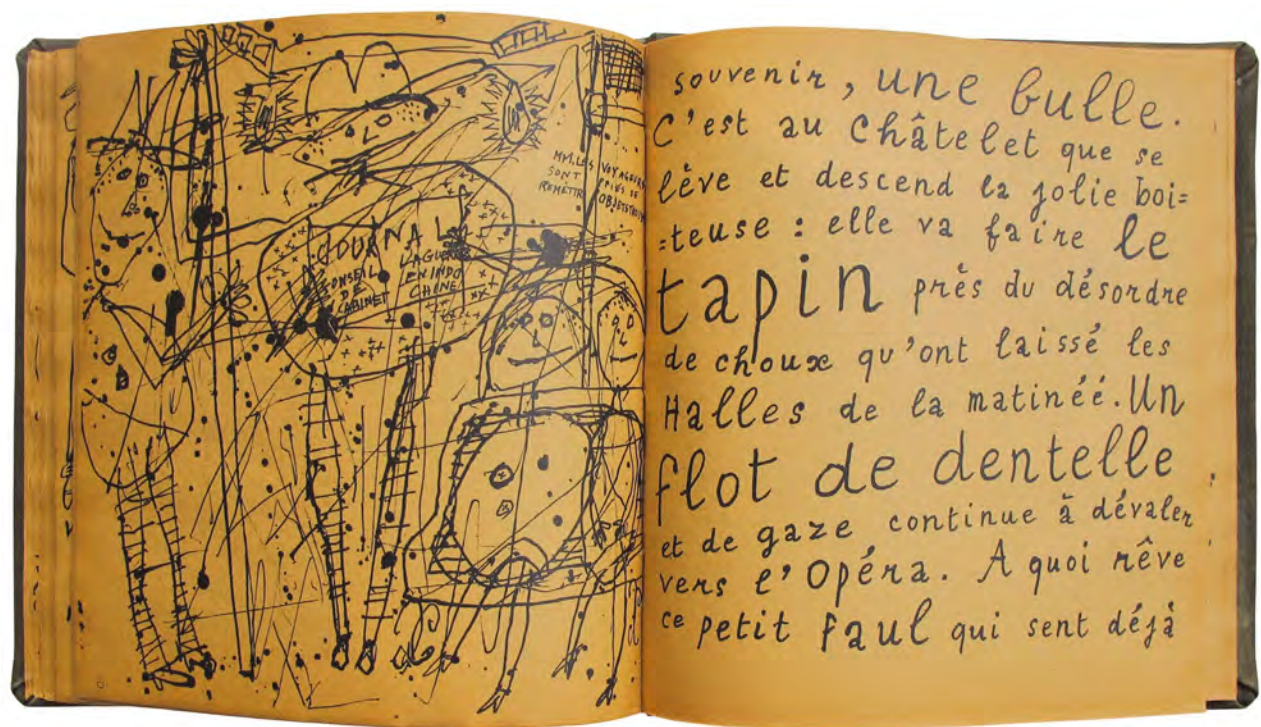 MM.LES VOYAGEURS
SONT PRIÉS DE
JOURNAL
CONSEIL
DE
CABINET
LAGUERRE
EN INDO
CHINE
souvenir, une bulle.
C'est au Châtelet que se
lève et descend la jolie boi=
=teuse : elle va faire le
tapin près du désordre
de choux qu'ont laissé les
Halles de la matinéé. Un
flot de dentelle
et de gaze continue à dévaler
vers l'Opéra. A quoi rêve
ce petit faul qui sent déjà